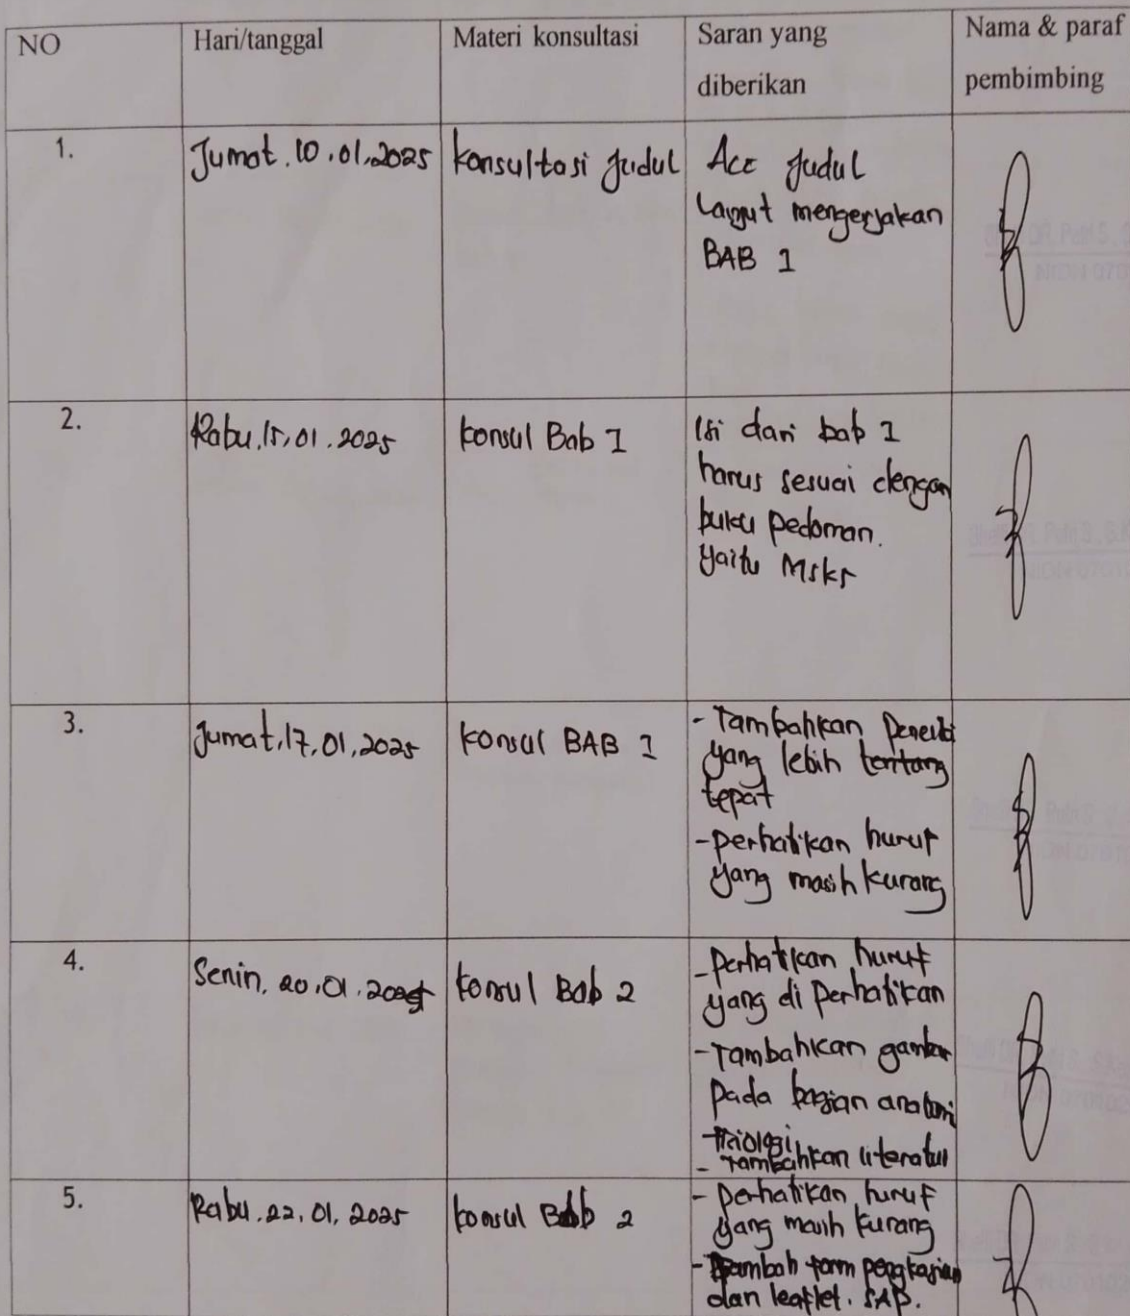 NO Hari/tanggal Materi konsultasi Saran yang diberikan Nama & paraf pembimbing
1. Jumat. 10.01.2025 konsultasi judul Acc judul
Lanjut mengerjakan
BAB 1
2. Rabu, 15, 01. 2025 konsul Bab 1 Isi dari bab 1
harus sesuai dengan
buku pedoman.
yaitu Msks
3. Jumat, 17, 01, 2025 konsul BAB 1 - Tambahkan
yang lebih tentang
tepat
- perhatikan huruf
yang masih kurang
4. Senin, 20, 01. 2025 konsul Bab 2 - perhatikan huruf
yang di perhatikan
- Tambahkan gambar
pada bagian anatomi
fisiologi
- Tambahkan literatur
5. Rabu. 22, 01, 2025 konsul Bab 2 - perhatikan huruf
yang masih kurang
- Tambah form pengkajian
dan leaflet. SAP.